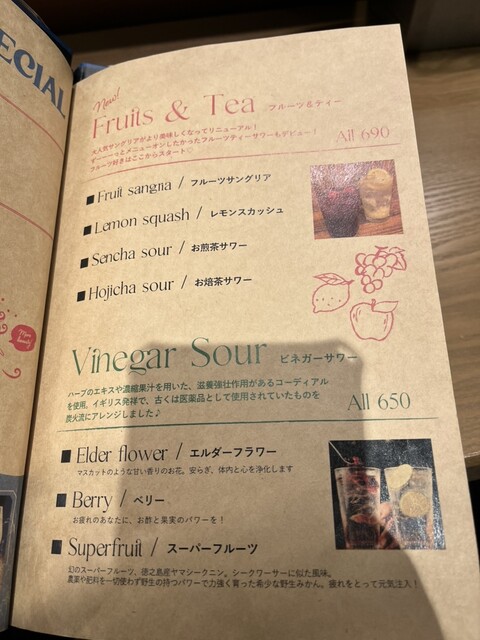 ECIAL
New!
Fruits & Tea フルーツ&ティー
大人気サングリアがより美味しくなってリニューアル!
ずーーーっとメニューオンしたかったフルーツティーサワーもデビュー!
フルーツ好きはここからスタート♡
All 690
■ Fruit sangria / フルーツサングリア
■ Lemon squash / レモンスカッシュ
■ Sencha sour / お煎茶サワー
■ Hojicha sour / お焙茶サワー
Vinegar Sour ビネガーサワー
ハーブのエキスや濃縮果汁を用いた、滋養強壮作用があるコーディアル
を使用。イギリス発祥で、古くは医薬品として使用されていたものを
炭火流にアレンジしました♪
All 650
■ Elder flower / エルダーフラワー
マスカットのような甘い香りのお花。安らぎ、体内と心を浄化します
■ Berry / ベリー
お疲れのあなたに、お酢と果実のパワーを!
■ Superfruit / スーパーフルーツ
幻のスーパーフルーツ、徳之島産ヤマシークニン。シークワーサーに似た風味。
農薬や肥料を一切使わず野生の持つパワーで力強く育った希少な野生みかん。疲れをとって元気注入!